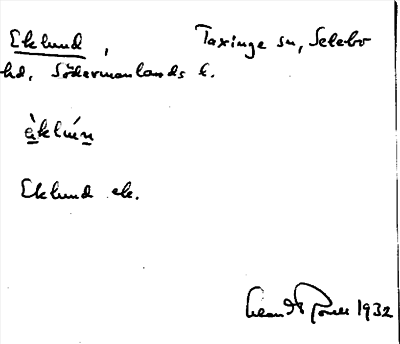 Eklund, Taxinge sn, Selebo
hd, Södermanlands l.
èklún
Eklund ek.
1932